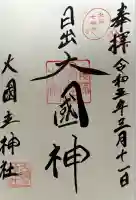 奉拝 令和五年三月十一日
日出大國神
大國主神社